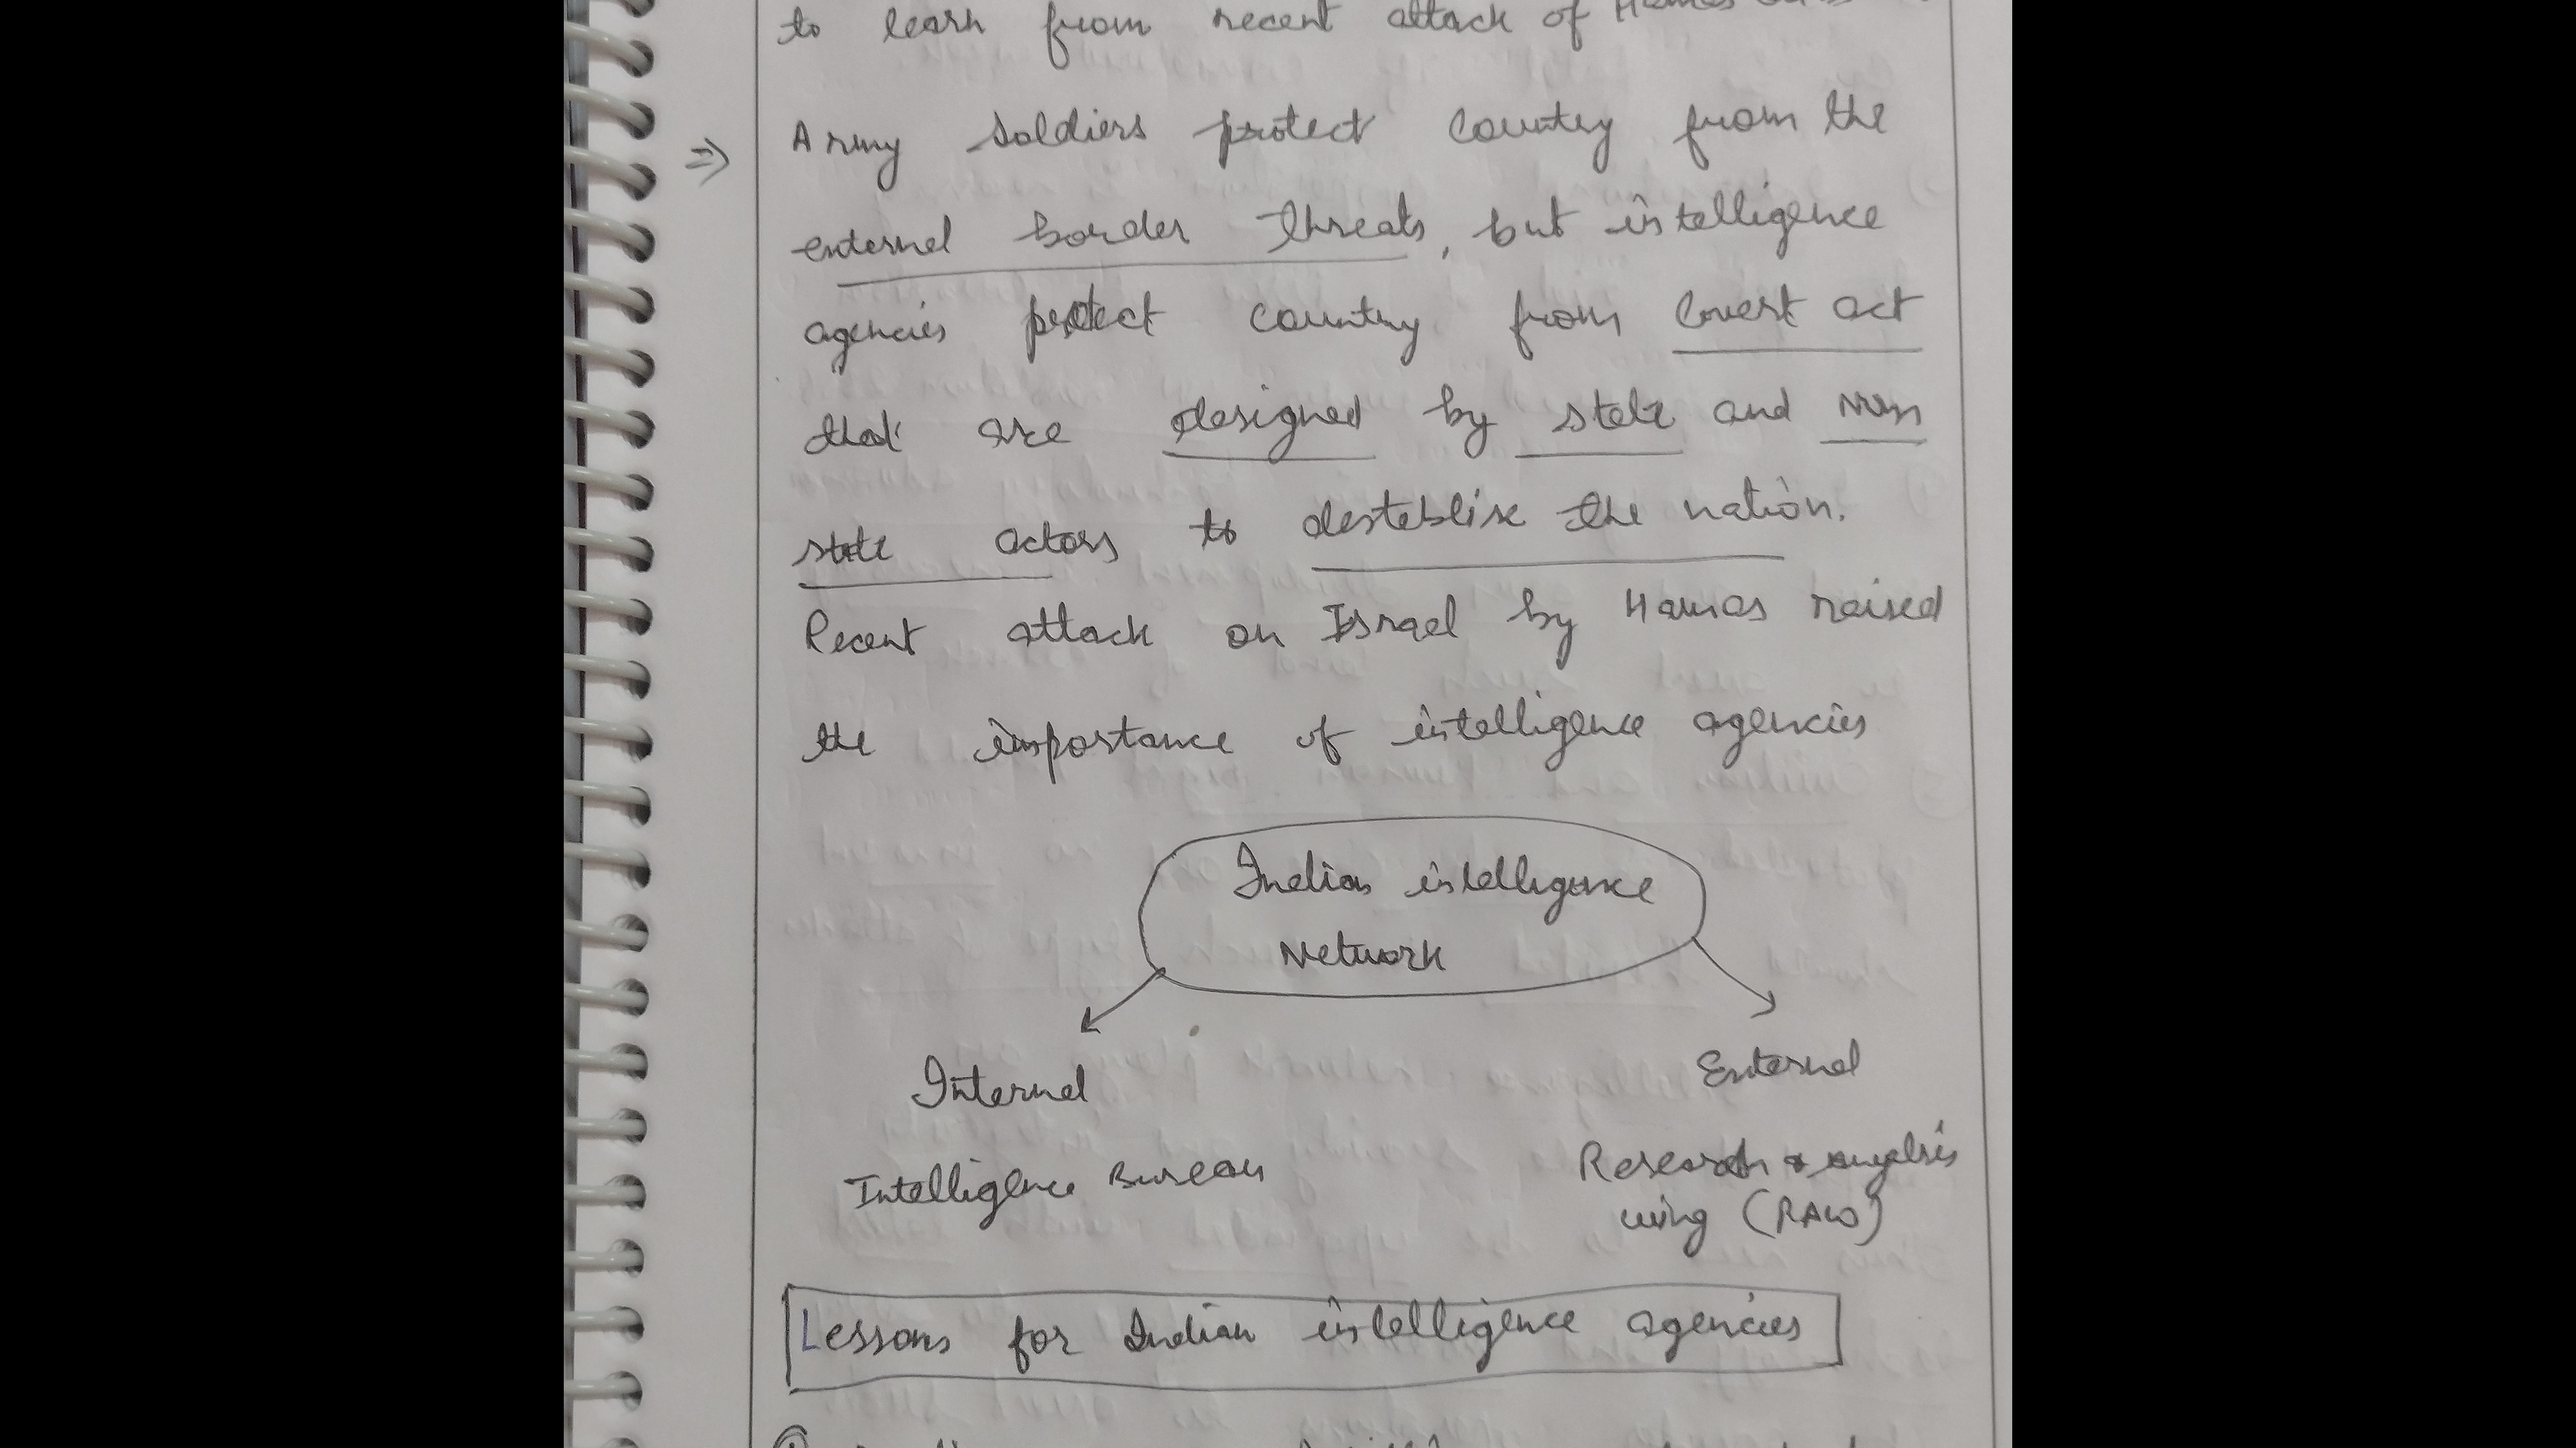 to learn from recent attack of Hamas
⇒ Army soldiers protect country from the
external border threats, but intelligence
agencies protect country from Covert act
that are designed by state and non
state actors to desteblise the nation.
Recent attack on Israel by Hamas raised
the importance of intelligence agencies
Indian intelligence
Network
Internal
External
Intelligence Bureau
Research & analysis
wing (RAW)
Lessons for Indian intelligence agencies